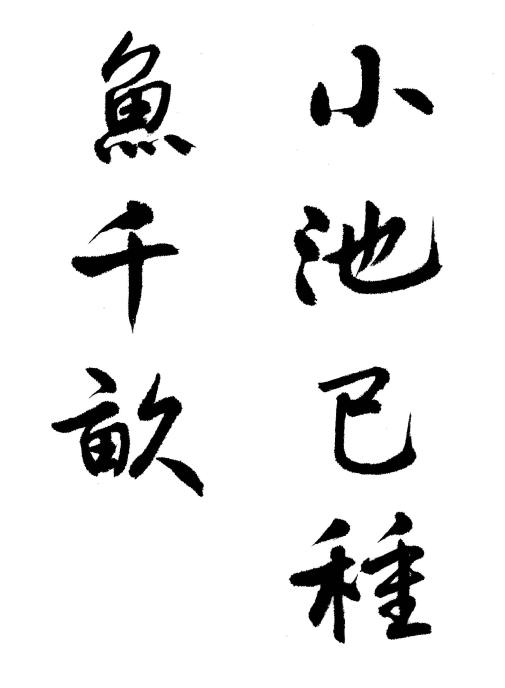 小池已種
魚千畝